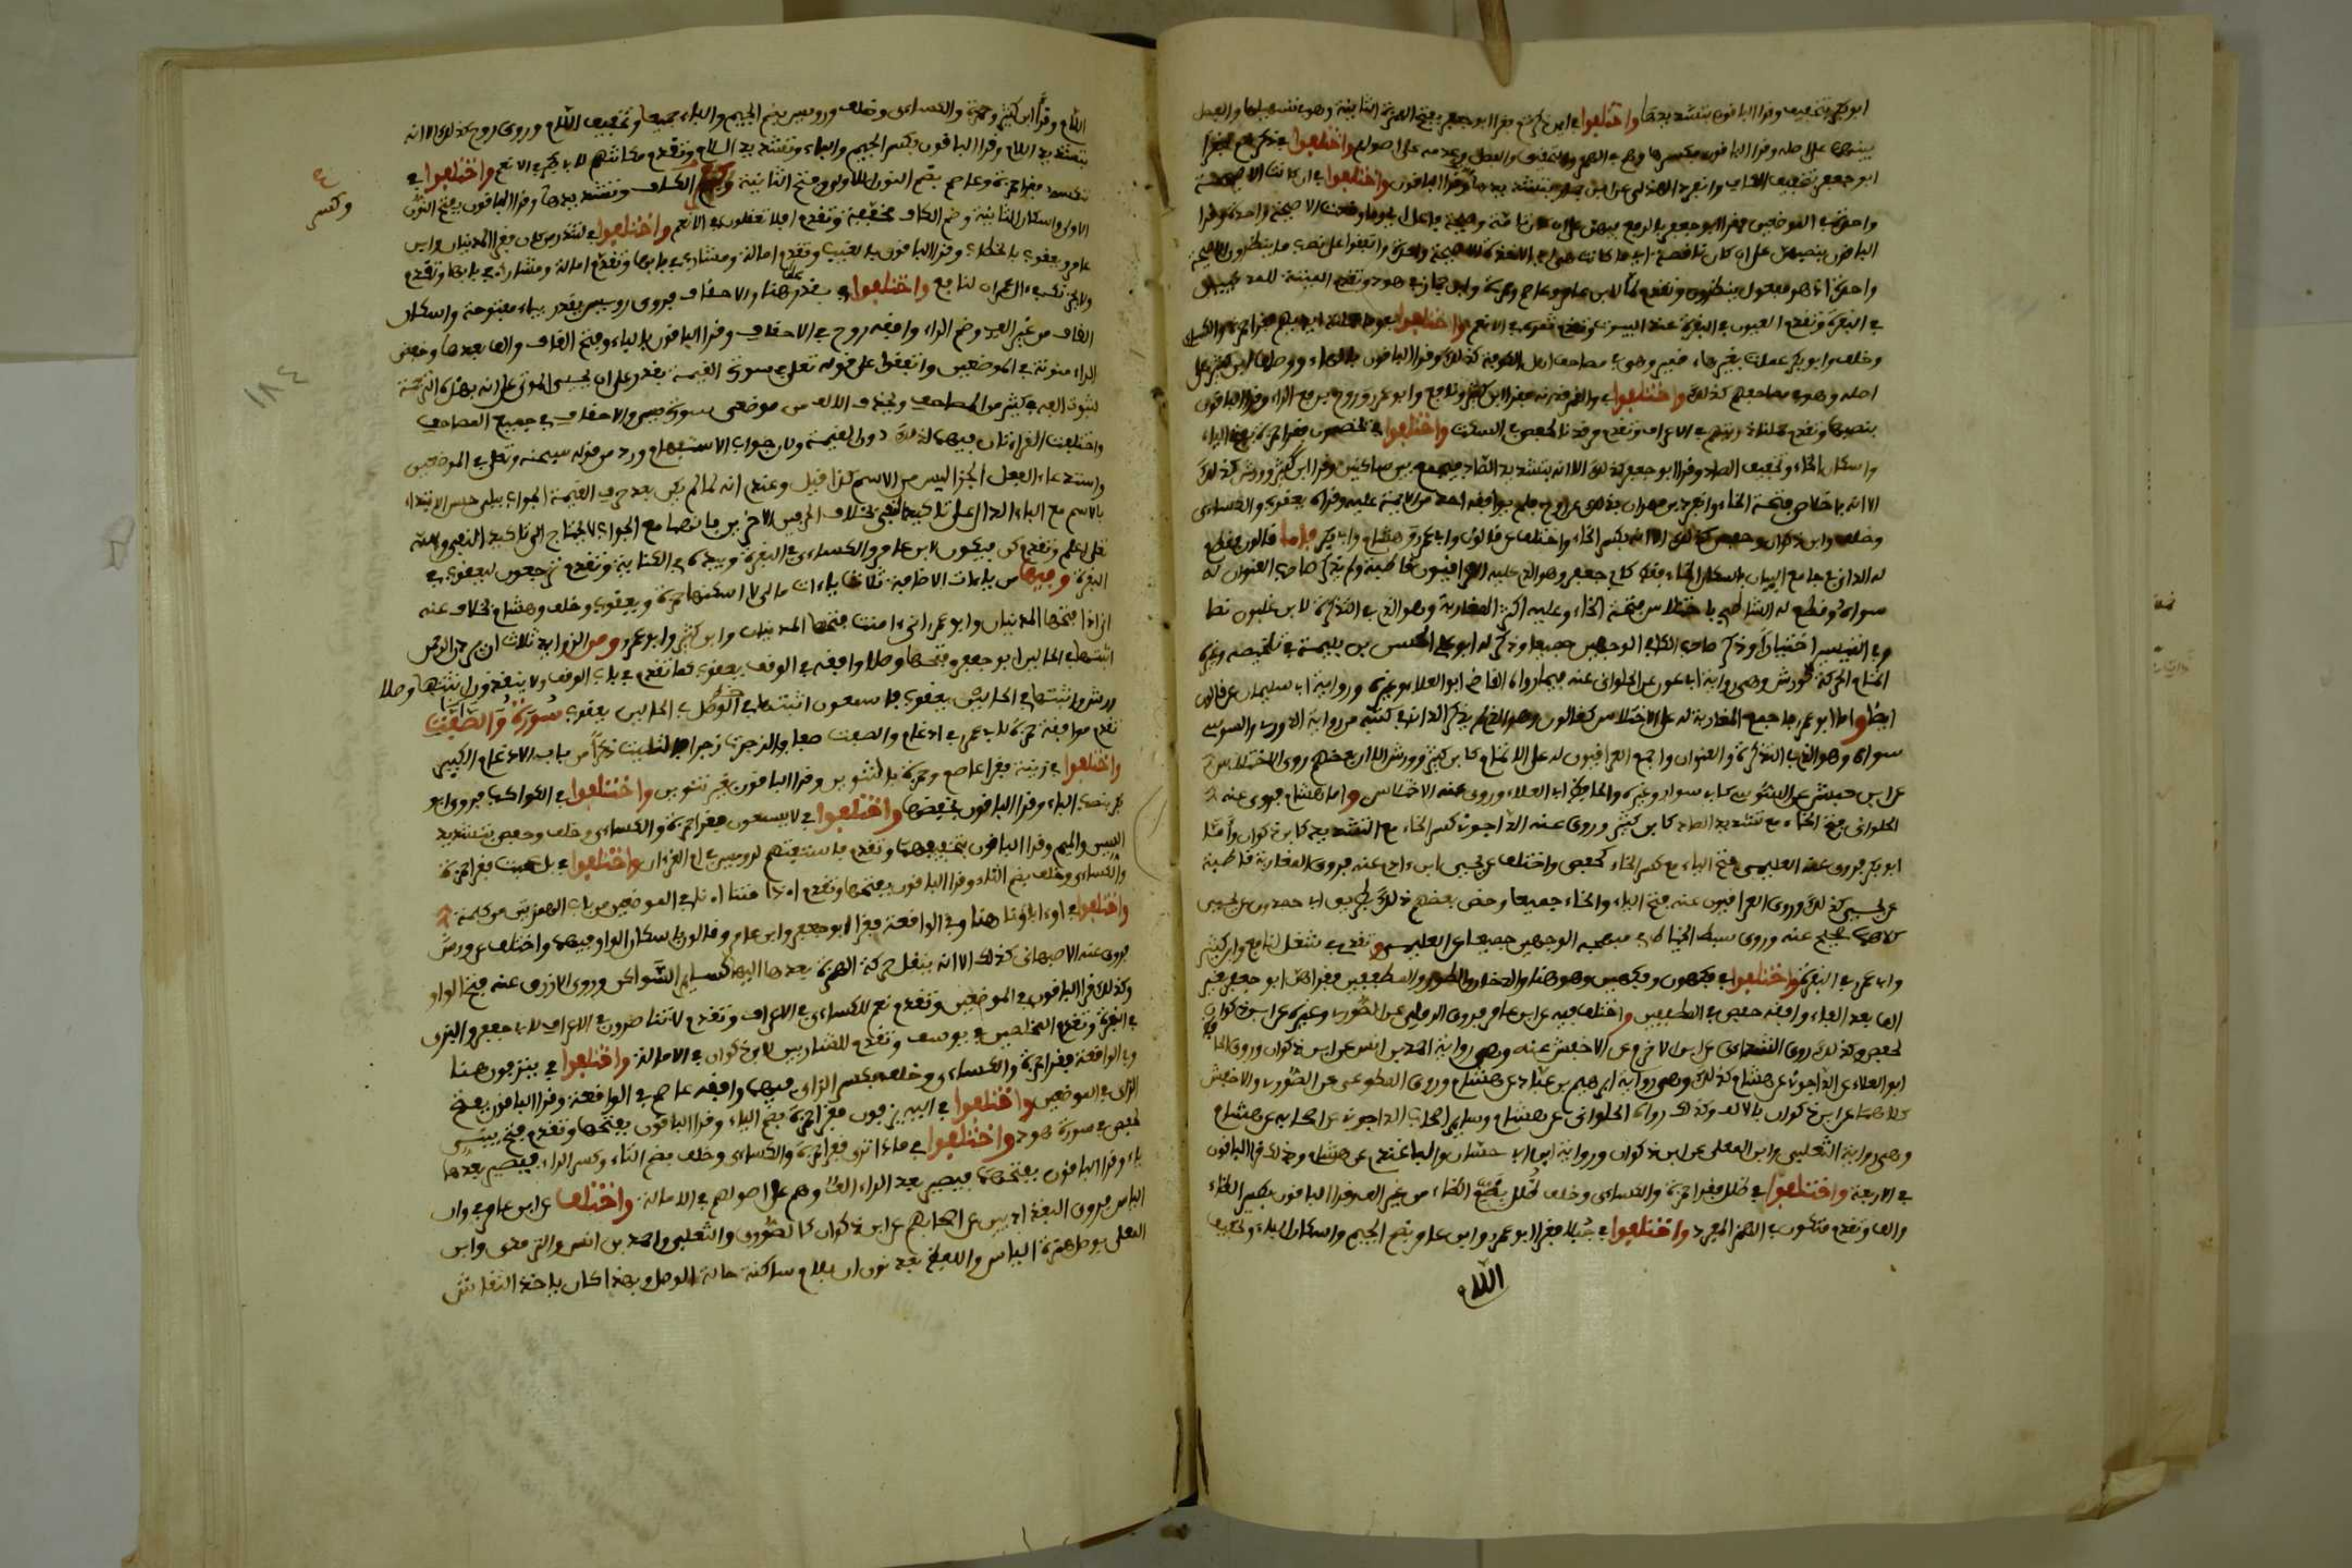 ابو بكر بتخفيف وقرا الباقون بتشديدها واختلفوا في اين ذكرتم فقرا ابو جعفر بفتح الهمزة الثانية وهو في تسهيلها والفصل
بينهما على اصله وقرا الباقون بكسرها وهم في التسهيل والتحقيق والفصل وعدمه على اصولهم واختلفوا في ذكرتم فقرا
ابو جعفر بتخفيف الكاف وقرا الباقون بتشديدها واختلفوا في ان كانت الا صيحة
واحدة في الموضعين فقرا ابو جعفر بالرفع فيهن على ان كان تامة وصيحة فاعل اي ما وقعت الا صيحة واحدة وقرا
الباقون بنصبهن على ان كان ناقصة اي ما كانت هي اي الاخذة الا صيحة واحدة واتفقوا على نصب ما ينظرون الا صيحة
واحدة اذ هو مفعول ينظرون وتقدم لما لابن عامر وعاصم وحمزة وابن جماز في هود وتقدم الميتة للمدنيين
في البقرة وتقدم العيون في البقرة عند البيوت وتقدم ثمره في الانعام واختلفوا في وما عملته ايديهم فقرا حمزة والكسائي
وخلف وابو بكر عملت بغير هاء ضمير وهي في مصاحف اهل الكوفة كذلك وقرا الباقون بالهاء ووصلها ابن كثير على
اصله وهو في مصاحفهم كذلك واختلفوا في والقمر قدرنه فقرا ابن كثير ونافع وابو عمرو وروح برفع الراء وقرا الباقون
بنصبها وتقدم حملنا ذريتهم في الاعراف وتقدم مرقدنا لحفص في السكت واختلفوا في يخصمون فقرا حمزة بفتح الياء
واسكان الخاء وتخفيف الصاد وقرا ابو جعفر كذلك الا انه بتشديد الصاد فيجمع بين ساكنين وقرا ابن كثير وورش كذلك
الا انه باخلاص فتحة الخاء وقراه يعقوب والكسائي
وخلف وابن ذكوان وحفص كذلك الا انه بكسر الخاء واختلف عن قالون وابي عمرو وهشام وابي بكر فاما قالون فقطع
له الداني في جامع البيان باسكان الخاء فقط كابي جعفر وهو الذي عليه العراقيون قاطبة ولم يذكر صاحب العنوان له
سواه وقطع له الشاطبي باختلاس فتحة الخاء وعليه اكثر المغاربة وهو الذي في التذكرة لابن غلبون نصا
وفي التيسير اختيارا وذكر صاحب الكافي الوجهين جميعا وذكر له ابو علي الحسن بن بليمة في تلخيصه وغيره
اتمام الحركة كورش وهي رواية ابي عون عن الحلواني عنه فيما رواه القاضي ابو العلا وغيره ورواية ابي سليمان عن قالون
ايضا واما ابو عمرو فاجمع المغاربة له على الاختلاس كقالون وهو الذي لم يذكر الداني في كتبه من رواية الدوري والسوسي
سواه وهو الذي في التذكرة والعنوان واجمع العراقيون له على الاتمام كابن كثير وورش الا ان بعضهم روى الاختلاس
واما هشام فروى عنه
الحلواني فتح الخاء مع تشديد الصاد كابن كثير وروى عنه الداجوني كسر الخاء مع التشديد كابن ذكوان واما
ابو بكر فروى عنه العليمي فتح الياء مع كسر الخاء كحفص واختلف عن يحيى ابن ادم عنه فروى المغاربة قاطبة
عن يحيى كذلك وروى العراقيون عنه فتح الياء والخاء جميعا وخص بعضهم ذلك بطريق ابي حمدون عن يحيى
كلاهما صحيح عنه وروى سبط الخياط في مبهجه الوجهين جميعا عن العليمي وتقدم في شغل لنافع وابن كثير
وابي عمرو في البقرة واختلفوا في فكهون وفكهين وهو هنا والدخان والطور والمطففين فقراهن ابو جعفر بغير
الف بعد الفاء وافقه حفص في المطففين واختلف فيه عن ابن عامر فروى الرملي عن الصوري وغيره عن ابن ذكوان
كحفص وكذلك روى الشذائي عن ابن الاخرم عن الاخفش عنه وهي رواية احمد بن انس عن ابن ذكوان وروى الحافظ
ابو العلاء عن الداجوني عن هشام كذلك وهي رواية ابرهيم بن عباد عن هشام وروى المطوعي عن الصوري والاخفش
كلاهما عن ابن ذكوان بالالف وكذلك رواه الحلواني عن هشام وسائر اصحاب الداجوني عن اصحابه عن هشام
وهي رواية الثعلبي وابن المعلى عن ابن ذكوان ورواية ابن ابي حسان والباغندي عن هشام وكذلك قرا الباقون
في الاربعة واختلفوا في ظلل فقرا حمزة والكسائي وخلف ظلل بضم الظاء من غير الف وقرا الباقون بكسر الظاء
والف وتقدم متكون في الهمز المفرد واختلفوا في جبلا فقرا ابو عمرو وابن عامر بضم الجيم واسكان الباء وتخفيف
اللام
اللام وقرا ابن كثير وحمزة والكسائي وخلف ورويس بضم الجيم والباء جميعا وتخفيف اللام وروى روح كذلك الا انه
بتشديد اللام وقرا الباقون بكسر الجيم والباء وتشديد اللام وتقدم مكانتهم لابي بكر في الانعم واختلفوا في
ننكسه فقرا حمزة وعاصم بضم النون الاولى وفتح الثانية وكسر الكاف وتشديدها وقرا الباقون بفتح النون
الاولى واسكان الثانية وضم الكاف مخففة وتقدم افلا تعقلون في الانعم واختلفوا في لتنذر من كان فقرا المدنيان وابن
عامر ويعقوب بالخطاب وقرا الباقون بالغيب وتقدم امالة ومشارب في بابها وتقدم
واختلفوا في بقدر هنا والاحقاف فروى رويس يقدر بياء مفتوحة واسكان
القاف من غير الف وضم الراء وافقه روح في الاحقاف وقرا الباقون بالباء وفتح القاف والف بعدها وخفض
الراء منونة في الموضعين واتفقوا على قوله تعلى في سورة القيمة بقدر على ان يحيي الموتى على انه بهذه الترجمة
لثبوت الفه في كثير من المصاحف ولحذف الالف من موضعي سورة يس والاحقاف في جميع المصاحف
واختلفت القراتان فيهما لذلك دون القيمة ولان جواب الاستفهام ورد من قوله سبحنه وتعلى في الموضعين
واستدعاء الفعل الجزا ليس من الاسم كذا قيل وعندي انه لما لم يكن بعد حرف القيمة الجواب ببلى حسن الابتداء
بالاسم مع الباء الدال على تاكيد النفي بخلاف الحرفين الاخرين فانهما مع الجواب لا يحتاج الى تاكيد النفي والله
تعلى اعلم وتقدم كن فيكون لابن عامر والكسائي في البقرة وبيده في الكناية وتقدم ترجعون ليعقوب في
البقرة وفيها من ياءات الاضافة ثلاث ياءات ما لي لا اسكنها حمزة ويعقوب وخلف وهشام بخلاف عنه
اني اذا فتحها المدنيان وابو عمرو اني ءامنت فتحها المدنيان وابن كثير وابو عمرو ومن الزوايد ثلاث ان يردن الرحمن
اثبتها في الحالين ابو جعفر وفتحها وصلا وافقه في الوقف يعقوب كما تقدم في باب الوقف ولا ينقذون اثبتها وصلا
ورش واثبتها في الحالين يعقوب فاسمعون اثبتها في الحالين يعقوب سورة والصفت
تقدم موافقة حمزة لابي عمرو في ادغام والصفت صفا والزجرت زجرا فالتليت ذكرا من باب الادغام الكبير
واختلفوا في زينة فقرا عاصم وحمزة بالتنوين وقرا الباقون بغير تنوين واختلفوا في الكواكب فروى ابو
بكر بنصب الباء وقرا الباقون بخفضها واختلفوا في لا يسمعون فقرا حمزة والكسائي وخلف وحفص بتشديد
السين والميم وقرا الباقون بتخفيفهما وتقدم فاستفتهم لرويس في ام القرءان واختلفوا في بل عجبت فقرا حمزة
والكسائي وخلف بضم التاء وقرا الباقون بفتحها وتقدم اءذا متنا اءنا في الموضعين من باب الهمزتين من كلمة
واختلفوا في اوءاباونا هنا وفي الواقعة فقرا ابو جعفر وابن عامر وقالون باسكان الواو فيهما واختلف عن ورش
فروى عنه الاصبهاني كذلك الا انه ينقل حركة الهمزة بعدها اليها كسائر السواكن وروى الازرق عنه فتح الواو
وكذلك قرا الباقون في الموضعين وتقدم نعم للكسائي في الاعراف وتقدم لا تناصرون لابي جعفر والبزي
في البقرة وتقدم المخلصين في يوسف وتقدم للشاربين لابن ذكوان في الامالة واختلفوا في ينزفون هنا
وفي الواقعة فقرا حمزة والكسائي وخلف بكسر الزاي فيهما وافقه عاصم في الواقعة وقرا الباقون بفتح
الزاي في الموضعين واختلفوا في اليه يزفون فقرا حمزة بضم الياء وقرا الباقون بفتحها وتقدم فتح يبني
لحفص في سورة هود واختلفوا في ماذا ترى فقرا حمزة والكسائي وخلف بضم التاء وكسر الراء فيصير بعدها
ياء وقرا الباقون بفتحهما فيصير بعد الراء الف وهم على اصولهم في الامالة واختلف عن ابن عامر في وان
الياس فروى البغداديون عن اصحابهم عن ابن ذكوان كالصوري والثعلبي واحمد بن انس والترمذي وابن
المعلى بوصل همزة الياس واللفظ بعد نون ان بلام ساكنة حالة الوصل وبهذا كان ياخذ النقاش
وكسر
١٨٤